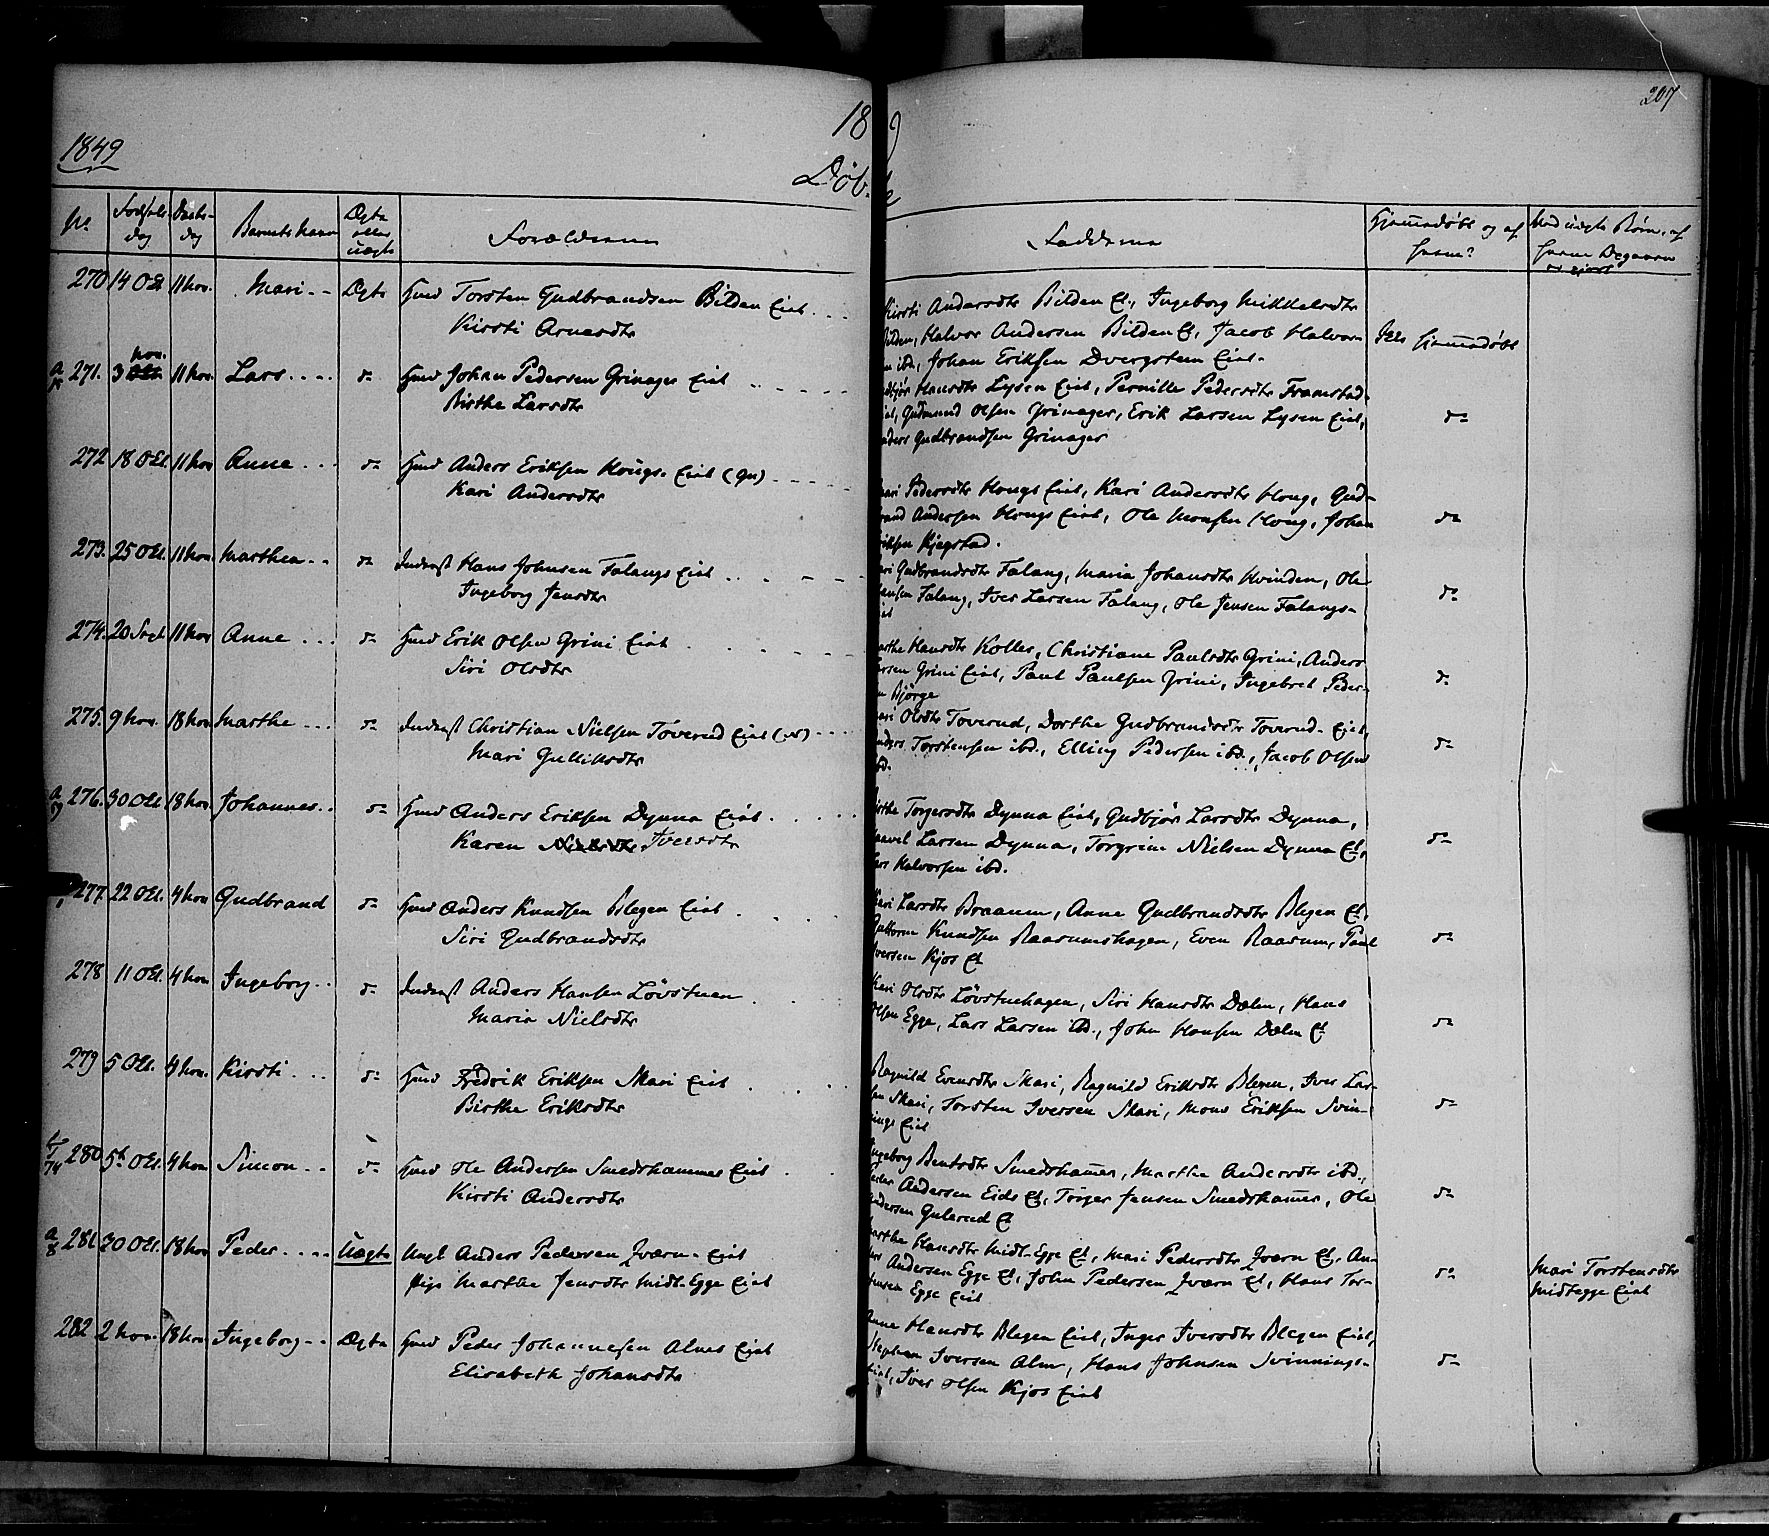 207
18
1849
Døb
No
Fødsels dag
Daabs- dag
Barnets Navn
Ægte eller uægte
Forældrene
Faddere
Hjemmedøbt og af hvem?
Ved uægte Børn, af hvem Angaaven er gjort
270 14 Oct 11 Nov. Mari Ægte Huusmd Torsten Gudbrandsen Bilden Eiet
Kirsti Arnesdtr
Kirsti Andersdtr Bilden E., Ingeborg Mikkelsdtr
Bilden, Halvor Andersen Bilden E., Jacob Halvor-
ibd., Johan Eriksen Dvergsten Eiet.
Ikke hjemmedøbt
271. 3 Nov. 11 Nov. Lars do Huusmd Johan Pedersen Grinager Eiet
Birthe Larsdtr
Hansdtr Lysen Eiet, Pernille Pedersdtr Framstad-
Gudmund Olsen Grinager, Erik Larsen Lysen Eiet,
Anders Gudbrandsen Grinager
do
272 18 Oct. 11 Nov Anne do Huusmd Anders Eriksen Hougs-Eiet (Gr)
Kari Andersdtr
Kari Pedersdtr Hougs Eiet, Kari Andersdtr Houg, Gud-
brand Andersen Hougs Eiet, Ole Monsen Houg, Johan
Eriksen Kjegstad.
do
273. 25 Oct. 11 Nov. Marthea do Inderst Hans Johnsen Falangs Eiet
Ingeborg Jensdtr
Kari Gudbrandsdtr Falang, Maria Johansdtr Hvinden, Ole
Hansen Falang, Iver Larsen Falang, Ole Jensen Falangs-
eiet
do
274. 20 Sept 11 Nov Anne do Huusmd Erik Olsen Grini Eiet
Siri Olsdtr
Marthe Hansdtr Koller, Christiane Paulsdtr Grini, Anders
Larsen Grini Eiet, Paul Paulsen Grini, Ingebret Peder-
sen Bjørge
do
275. 9 Nov. 18 Nov Marthe do Inderst Christian Nielsen Toverud Eiet
Mari Gulliksdtr
Kari Olsdtr Toverud, Dorthe Gudbrandsdtr Toverud-Eiet,
Anders Torstensen ibd., Elling Pedersen ibd., Jacob Olsen
ibd.
do
276. 30 Oct. 18 Nov Johannes do Huusmd Anders Eriksen Dynna Eiet
Karen Iversdtr
Birthe Torgersdtr Dynna Eiet, Gudbjør Larsdtr Dynna,
Paavel Larsen Dynna, Torgrim Nielsen Dynna E.,
Lars Halvorsen ibd.
do
277. 22 Oct. 4 Nov Gudbrand do Huusmd Anders Knudsen Blegen Eiet
Siri Gudbrandsdtr
Kari Larsdtr Braanen, Anne Gudbrandsdtr Blegen E.,
Guttorm Knudsen Raasumshagen, Even Raasum, Paul
Iversen Kjos E
do
278 11 Oct. 4 Nov Ingeborg do Inderst Anders Hansen Løvstuen
Maria Nielsdtr
Kari Olsdtr Løvstuehagen, Siri Hansdtr Dælen, Hans
Olsen Egge, Lars Larsen ibd., John Hansen Dælen E
do
279 5 Oct. 4 Nov. Kirsti do Huusmd Fredrik Eriksen Skari Eiet
Birthe Eriksdtr
Ragnild Evensdtr Skari, Ragnild Eriksdtr Blegen, Iver Lar-
sen Skari, Torsten Iversen Skari, Mons Eriksen Svin-
nings Eiet
do
280 5te Oct. 4 Nov Simon do Huusmd Ole Andersen Smedshammer Eiet
Kirsti Andersdtr
Ingeborg Bentsdtr Smedshamer, Marthe Andersdtr ibd.,
Peder Andersen Eids E., Torger Jensen Smedshamer, Ole
Andersen Gulerud E
do
281 30 Oct. 18 Nov Peder Uægte Ungk Anders Pedersen Qværn-Eiet
Pige Marthe Jensdtr Midt-Egge Eiet
Marthe Hansdtr Midt-Egge E., Mari Pedersdtr Qværn E., An-
ders Andersen Egge E., John Pedersen Qværn E., Hans Tor-
stensen Egge Eiet
do
Mari Torstensdtr
Midtegge Eiet
282 2 Nov. 18 Nov Ingeborg Ægte Huusmd Peder Johannesen Alms Eiet
Elisabeth Johansdtr
Anne Hansdtr Blegen Eiet, Inger Iversdtr Blegen Eiet,
Stephan Iversen Alm, Hans Johnsen Svinnings-
eiet, Iver Olsen Kjos Eiet
do